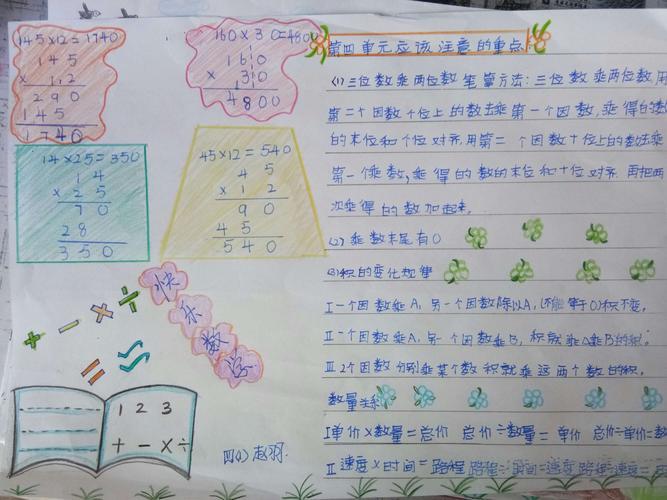 145×12=1740
145
× 12
290
145
1740
160×30=4800
160
× 30
4800
14×25=350
14
×25
70
28
350
45×12=540
45
×12
90
45
540
+ − × ÷
=
快乐数学
1 2 3
+ − × ÷
四(1) 赵羽
第四单元应该注意的重点
(1)三位数乘两位数笔算方法:三位数乘两位数,用
第二个因数个位上的数去乘第一个因数,乘得的数
的末位和个位对齐.用第二个因数十位上的数去乘
第一个乘数,乘得的数的末位和十位对齐.再把两
次乘得的数加起来.
(2)乘数末尾有0
(3)积的变化规律
I一个因数乘A,另一个因数除以A,(不能等于0)积不变.
II一个因数乘A,另一个因数乘B,积就乘A乘B的积.
III 2个因数分别乘某个数积就乘这两个数的积.
数量关系
I单价×数量=总价 总价÷数量=单价 总价÷单价=数
II速度×时间=路程 路程÷时间=速度 路程÷速度=